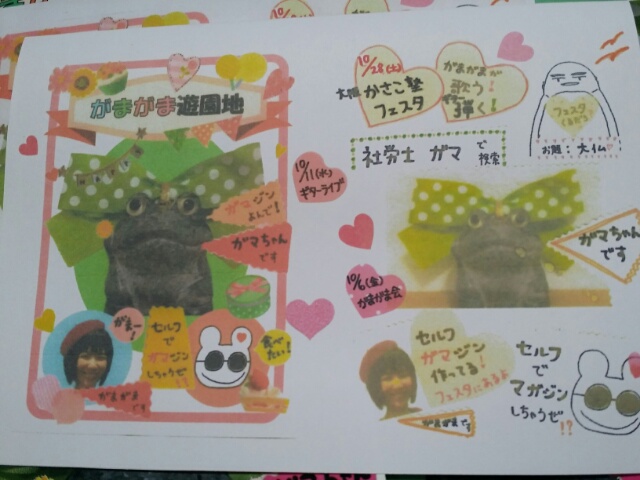 がまがま遊園地
HAPPY
ガマジン
よんで!
ガマちゃん
です
がまー!
セルフ
で
ガマジン
しちゃうぜ!?
食べ
たい!
がまがま
です
10/11(水)
ギターライブ
10/6(金)
がまがま会
10/28(土)
大阪 かさこ塾
フェスタ
がまがまが
歌う!
ギター
弾く!
フェスタ
くるだろ
お題:大仏
社労士 ガマ で
検索
ガマちゃん
です
セルフ
ガマジン
作ってる!
フェスタにあるよ
がまがまです
セルフ
で
マガジン
しちゃうぜ!?